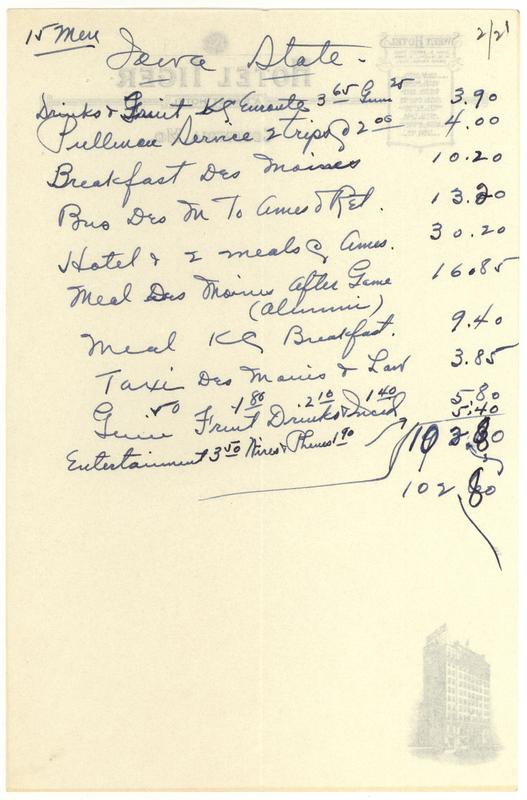 15 Men
2/21
Iowa State.
Drinks & Fruit KC Enroute 3 65 Gum 25 3.90
Pullman Service 2 trips @ 2 00 4.00
Breakfast Des Moines 10.20
Bus Des M To Ames & Ret. 13.20
Hotel & 2 meals @ Ames. 30.20
Meal Des Moines After Game 16.85
(Alumni)
Meal KC Breakfast. 9.40
Taxi Des Moines & Law 3.85
Gum .50 Fruit 1 80 Drinks 2 10 & 1 40 5 80
Entertainment 3 50 Wires & Phones 1 90 5.40
102.80
102.80
HOTEL TIGER